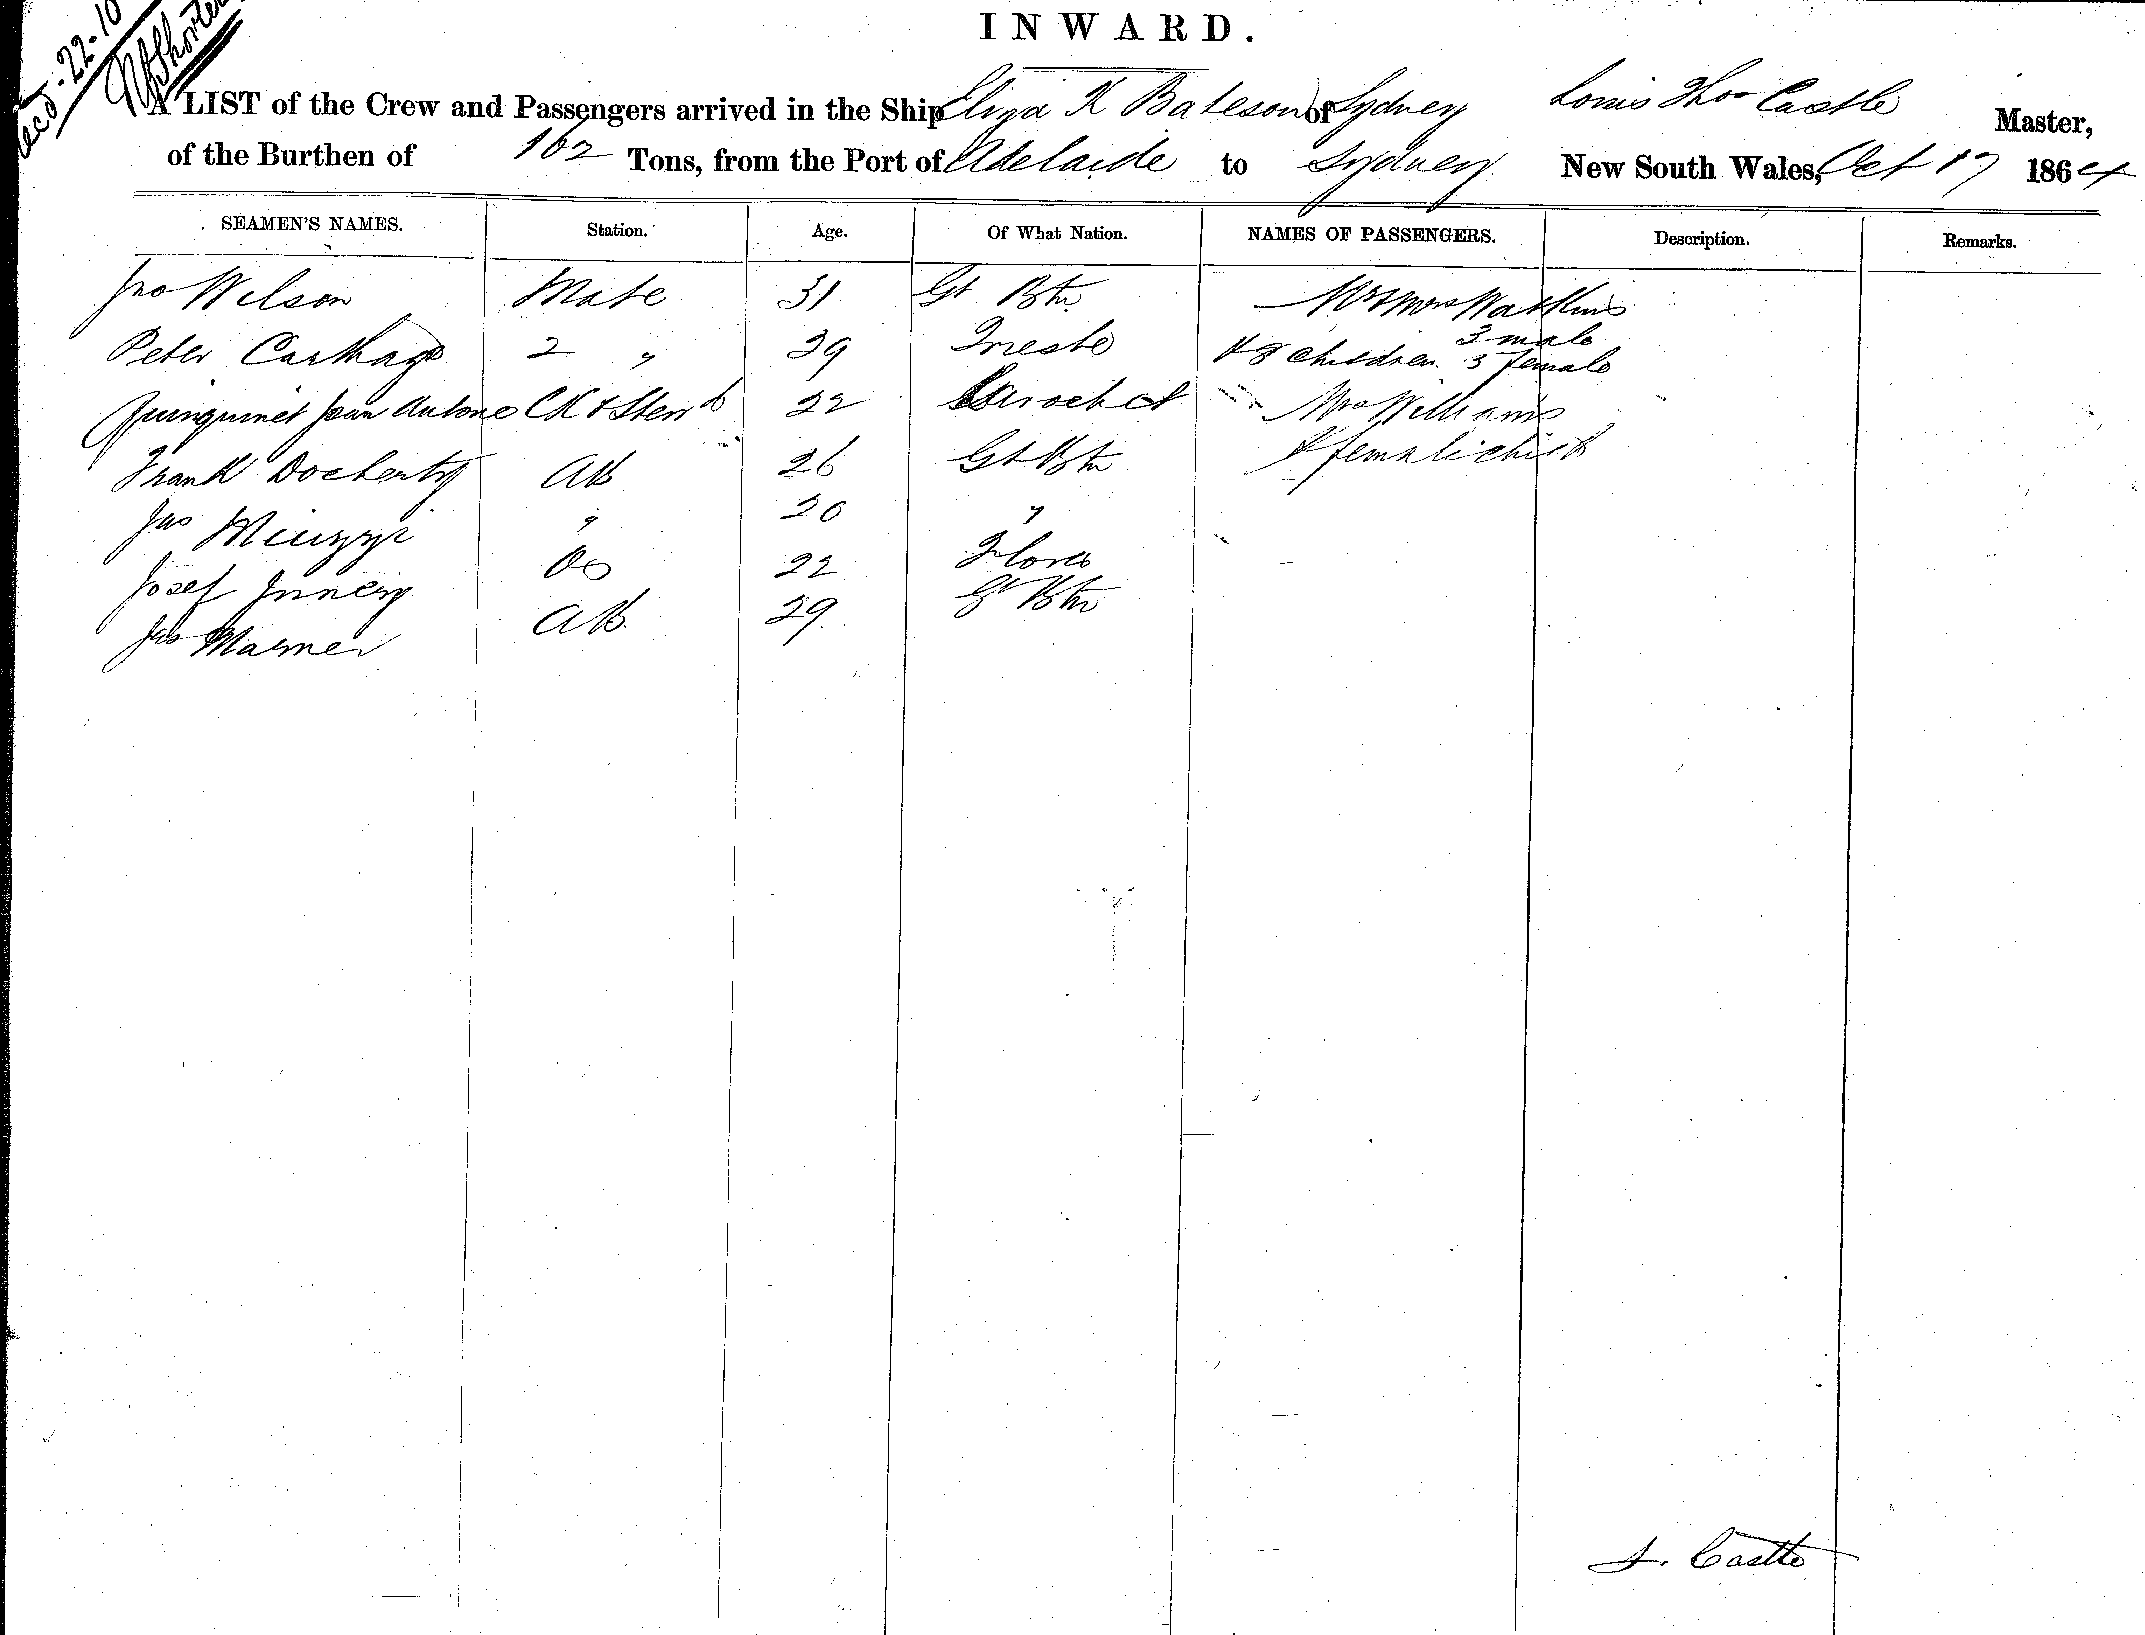 recd. 22-10
INWARD.
A LIST of the Crew and Passengers arrived in the Ship Eliza K Bateson of Sydney Louis Thos Castle Master,
of the Burthen of 162 Tons, from the Port of Adelaide to Sydney New South Wales, Oct 17 1864
SEAMEN'S NAMES. Station. Age. Of What Nation. NAMES OF PASSENGERS. Description. Remarks.
Jno Wilson Mate 31 Gt Btn Mr & Mrs Watkins
3 male
Peter Carthage 2 " 29 Trieste & 8 children 5 female
Quinquinet Jean Antone CK & Stewd 22 Mrs Williams
Frank Docherty AB 26 Gt Btn & female child
Jas " 20 "
Josef OS 22 Flores
Jas Marner AB 29 Gt Btn
L. Castle